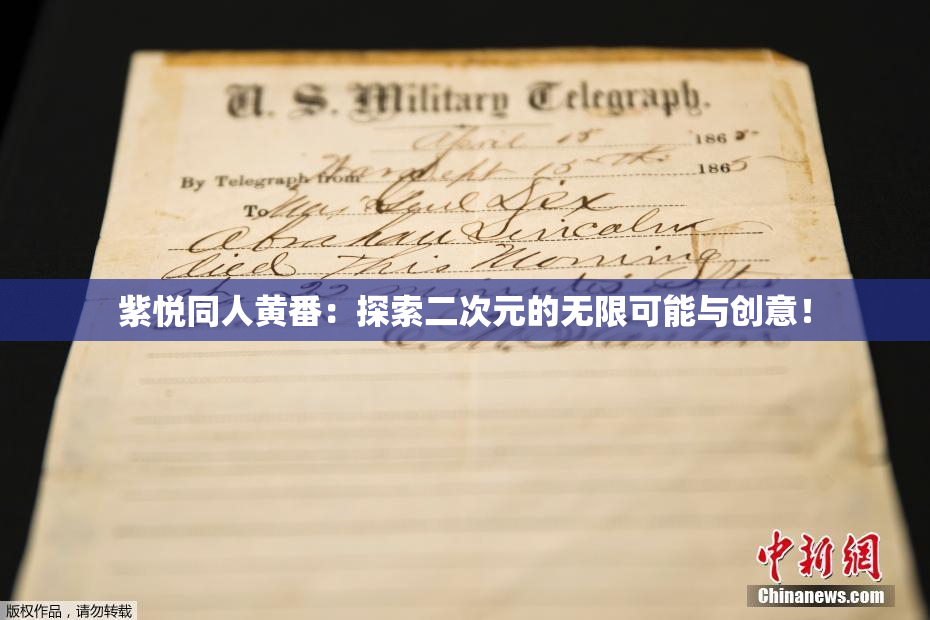 U. S. Military Telegraph.
April 15 1865-
By Telegraph from War Dept 15th 1865
To Maj Genl Dix
Abraham Lincoln
died This Morning
at 22 minutes after
紫悦同人黄番：探索二次元的无限可能与创意！
中新網
Chinanews.com
版权作品，请勿转载